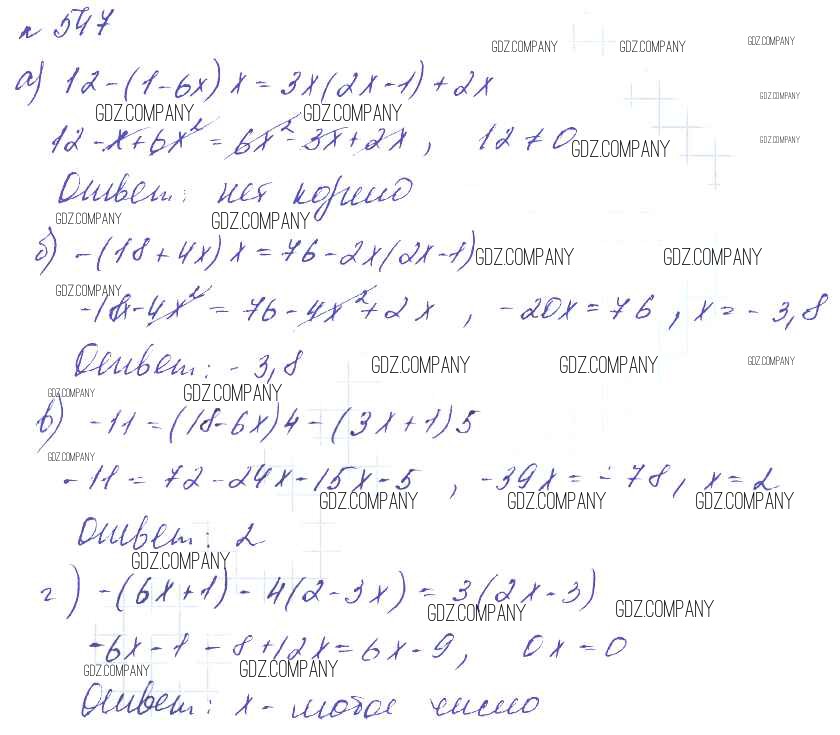 № 547
GDZ.COMPANY GDZ.COMPANY GDZ.COMPANY
а) 12-(1-6x)x=3x(2x-1)+2x
GDZ.COMPANY
GDZ.COMPANY GDZ.COMPANY
12-x+6x²=6x²-3x+2x, 12≠0
GDZ.COMPANY GDZ.COMPANY
Ответ: нет корней
GDZ.COMPANY GDZ.COMPANY
б) -(18+4x)x=76-2x(2x-1)
GDZ.COMPANY GDZ.COMPANY
GDZ.COMPANY
-18x-4x²=76-4x²+2x, -20x=76, x=-3,8
Ответ: -3,8
GDZ.COMPANY GDZ.COMPANY GDZ.COMPANY
GDZ.COMPANY GDZ.COMPANY
в) -11=(18-6x)4-(3x+1)5
GDZ.COMPANY
-11=72-24x-15x-5, -39x=-78, x=2
GDZ.COMPANY GDZ.COMPANY GDZ.COMPANY
Ответ: 2
GDZ.COMPANY
г) -(6x+1)-4(2-3x)=3(2x-3)
GDZ.COMPANY GDZ.COMPANY
-6x-1-8+12x=6x-9, 0x=0
GDZ.COMPANY GDZ.COMPANY
Ответ: x-любое число